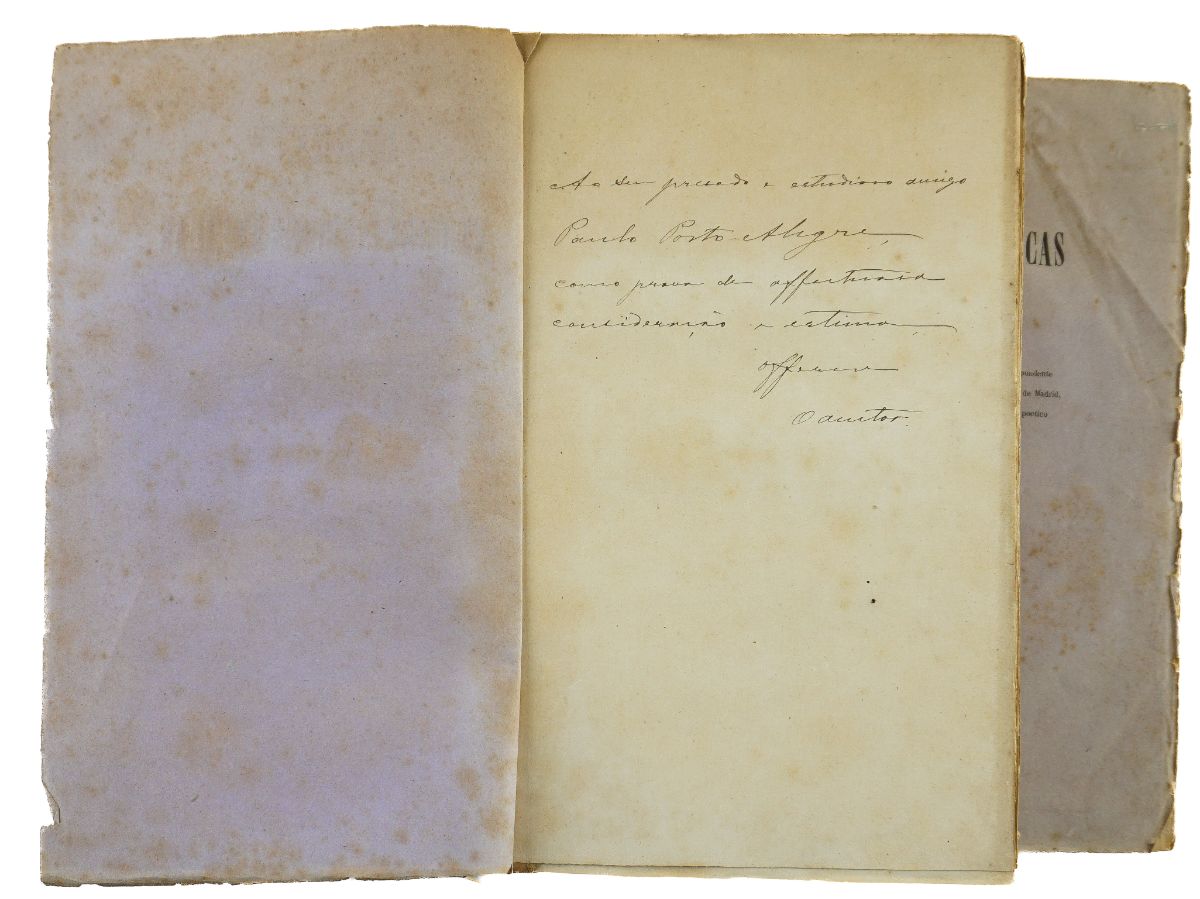 Ao seu presado e estudioso amigo
Paulo Porto Alegre,
como prova de affectuosa
consideração e estima,
offerece
O auctor.
CAS
pondente
de Madrid,
poetico